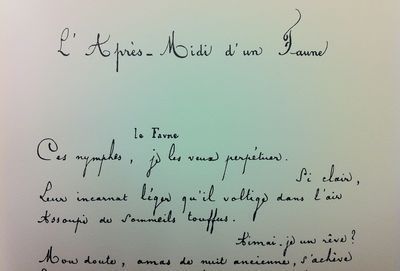 L'Après-Midi d'un Faune
le Favne
Ces nymphes, je les veux perpétuer.
Si clair,
Leur incarnat léger qu'il voltige dans l'air
Assoupi de sommeils touffus.
Aimai-je un rêve?
Mon doute, amas de nuit ancienne, s'achève